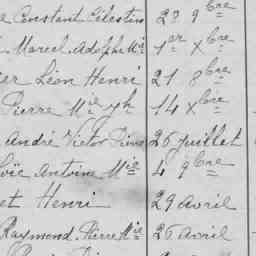 e Constant Célestin 22 9bre
Marcel Adolphe Mie 1er Xbre
er Léon Henri 21 8bre
Pierre Mie yh 14 Xbre
André Victor 26 juillet
Antoine Mie 4 9bre
et Henri 29 avril
Raymond Pierre Mie 26 avril